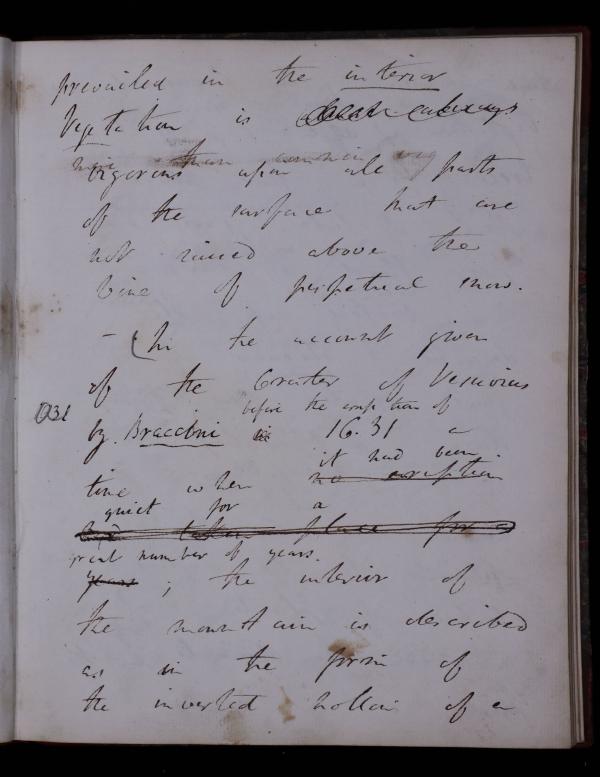 prevailed in the interior
Vegetation is almost always
more than common veg
vigorous upon all parts
of the surface that are
not raised above the
line of perpetual snow.
– (In the account given
of the Crater of Vesuvius
before the eruption of
1031
by Braccini in 16.31 a
it had been
time when no eruption
quiet for a
had taken place for a
great number of years.
years ; the interior of
the mountain is described
as in the form of
the inverted hollow of a